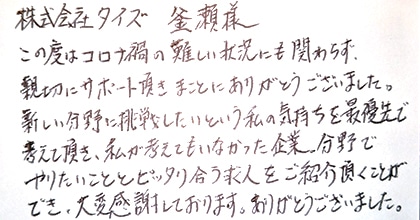 株式会社タイズ 釜瀬様
この度はコロナ禍の難しい状況にも関わらず、
親切にサポート頂きまことにありがとうございました。
新しい分野に挑戦したいという私の気持ちを最優先で
考えて頂き、私が考えてもいなかった企業、分野で
やりたいこととピッタリ合う求人をご紹介頂くことが
でき、大変感謝しております。ありがとうございました。